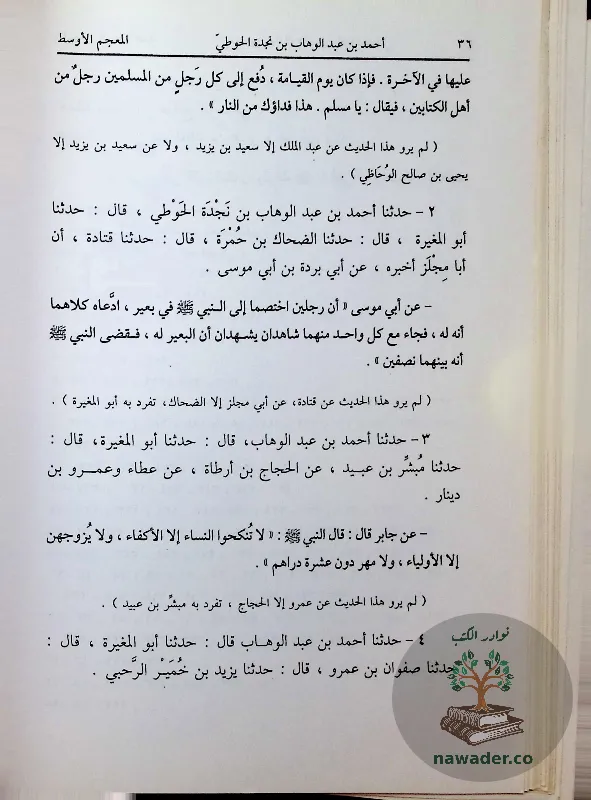 ٣٦ أحمد بن عبد الوهاب بن نجدة الحوطيّ المعجم الأوسط
عليها في الآخرة . فإذا كان يوم القيامة ، دُفع إلى كل رَجلٍ من المسلمين رجلٌ من
أهل الكتابين ، فيقال : يا مسلم . هذا فداؤك من النار » .
( لم يرو هذا الحديث عن عبد الملك إلا سعيد بن يزيد ، ولا عن سعيد بن يزيد إلا
يحيى بن صالح الوُحَاظِي ) .
٢ – حدثنا أحمد بن عبد الوهاب بن نَجْدَة الحَوْطي ، قال : حدثنا
أبو المغيرة ، قال : حدثنا الضحاك بن حُمْرَة ، قال : حدثنا قتادة ، أن
أبا مِجْلَز أخبره ، عن أبي بردة بن أبي موسى .
– عن أبي موسى « أن رجلين اختصما إلى النبي ﷺ في بعير ، ادَّعاه كلاهما
أنه له ، فجاء مع كل واحد منهما شاهدان يشهدان أن البعير له ، فقضى النبي ﷺ
أنه بينهما نصفين » .
( لم يرو هذا الحديث عن قتادة، عن أبي مجلز إلا الضحاك، تفرد به أبو المغيرة ) .
٣ – حدثنا أحمد بن عبد الوهاب، قال : حدثنا أبو المغيرة، قال :
حدثنا مُبشِّر بن عبيد ، عن الحجاج بن أرطاة ، عن عطاء وعمرو بن
دينار .
– عن جابر قال : قال النبي ﷺ : « لا تُنكحوا النساء إلا الأكفاء ، ولا يُزوجهن
إلا الأولياء ، ولا مهر دون عشرة دراهم » .
( لم يرو هذا الحديث عن عمرو إلا الحجاج ، تفرد به مبشِّر بن عبيد ) .
٤ – حدثنا أحمد بن عبد الوهاب قال : حدثنا أبو المغيرة ، قال :
حدثنا صفوان بن عمرو ، قال : حدثنا يزيد بن خُمَيْر الرَّحبي .
نوادر الكتب
nawader.co